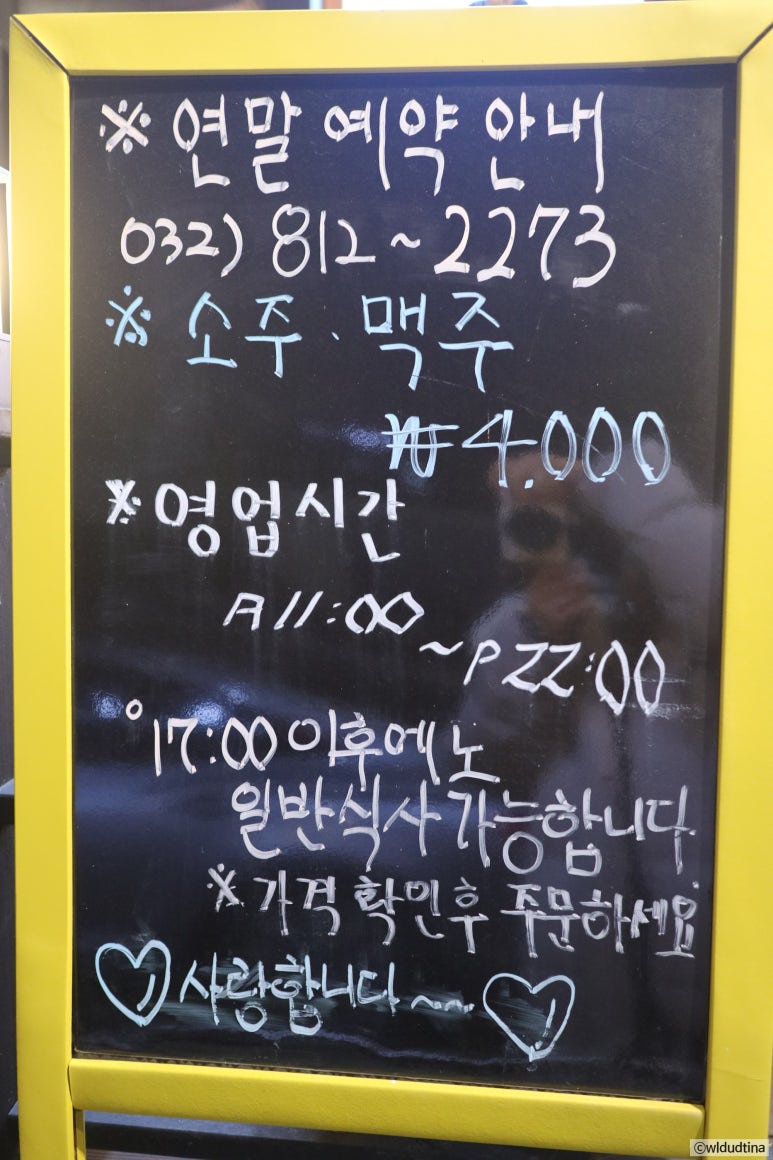 ※ 연말 예약 안내
032) 812~2273
※ 소주·맥주
₩4.000
※ 영업시간
A 11:00
~P 22:00
°17:00 이후에노
일반식사 가능합니다.
※ 가격 확인후 주문하세요
♡사랑합니다~~♡
©wldudtina